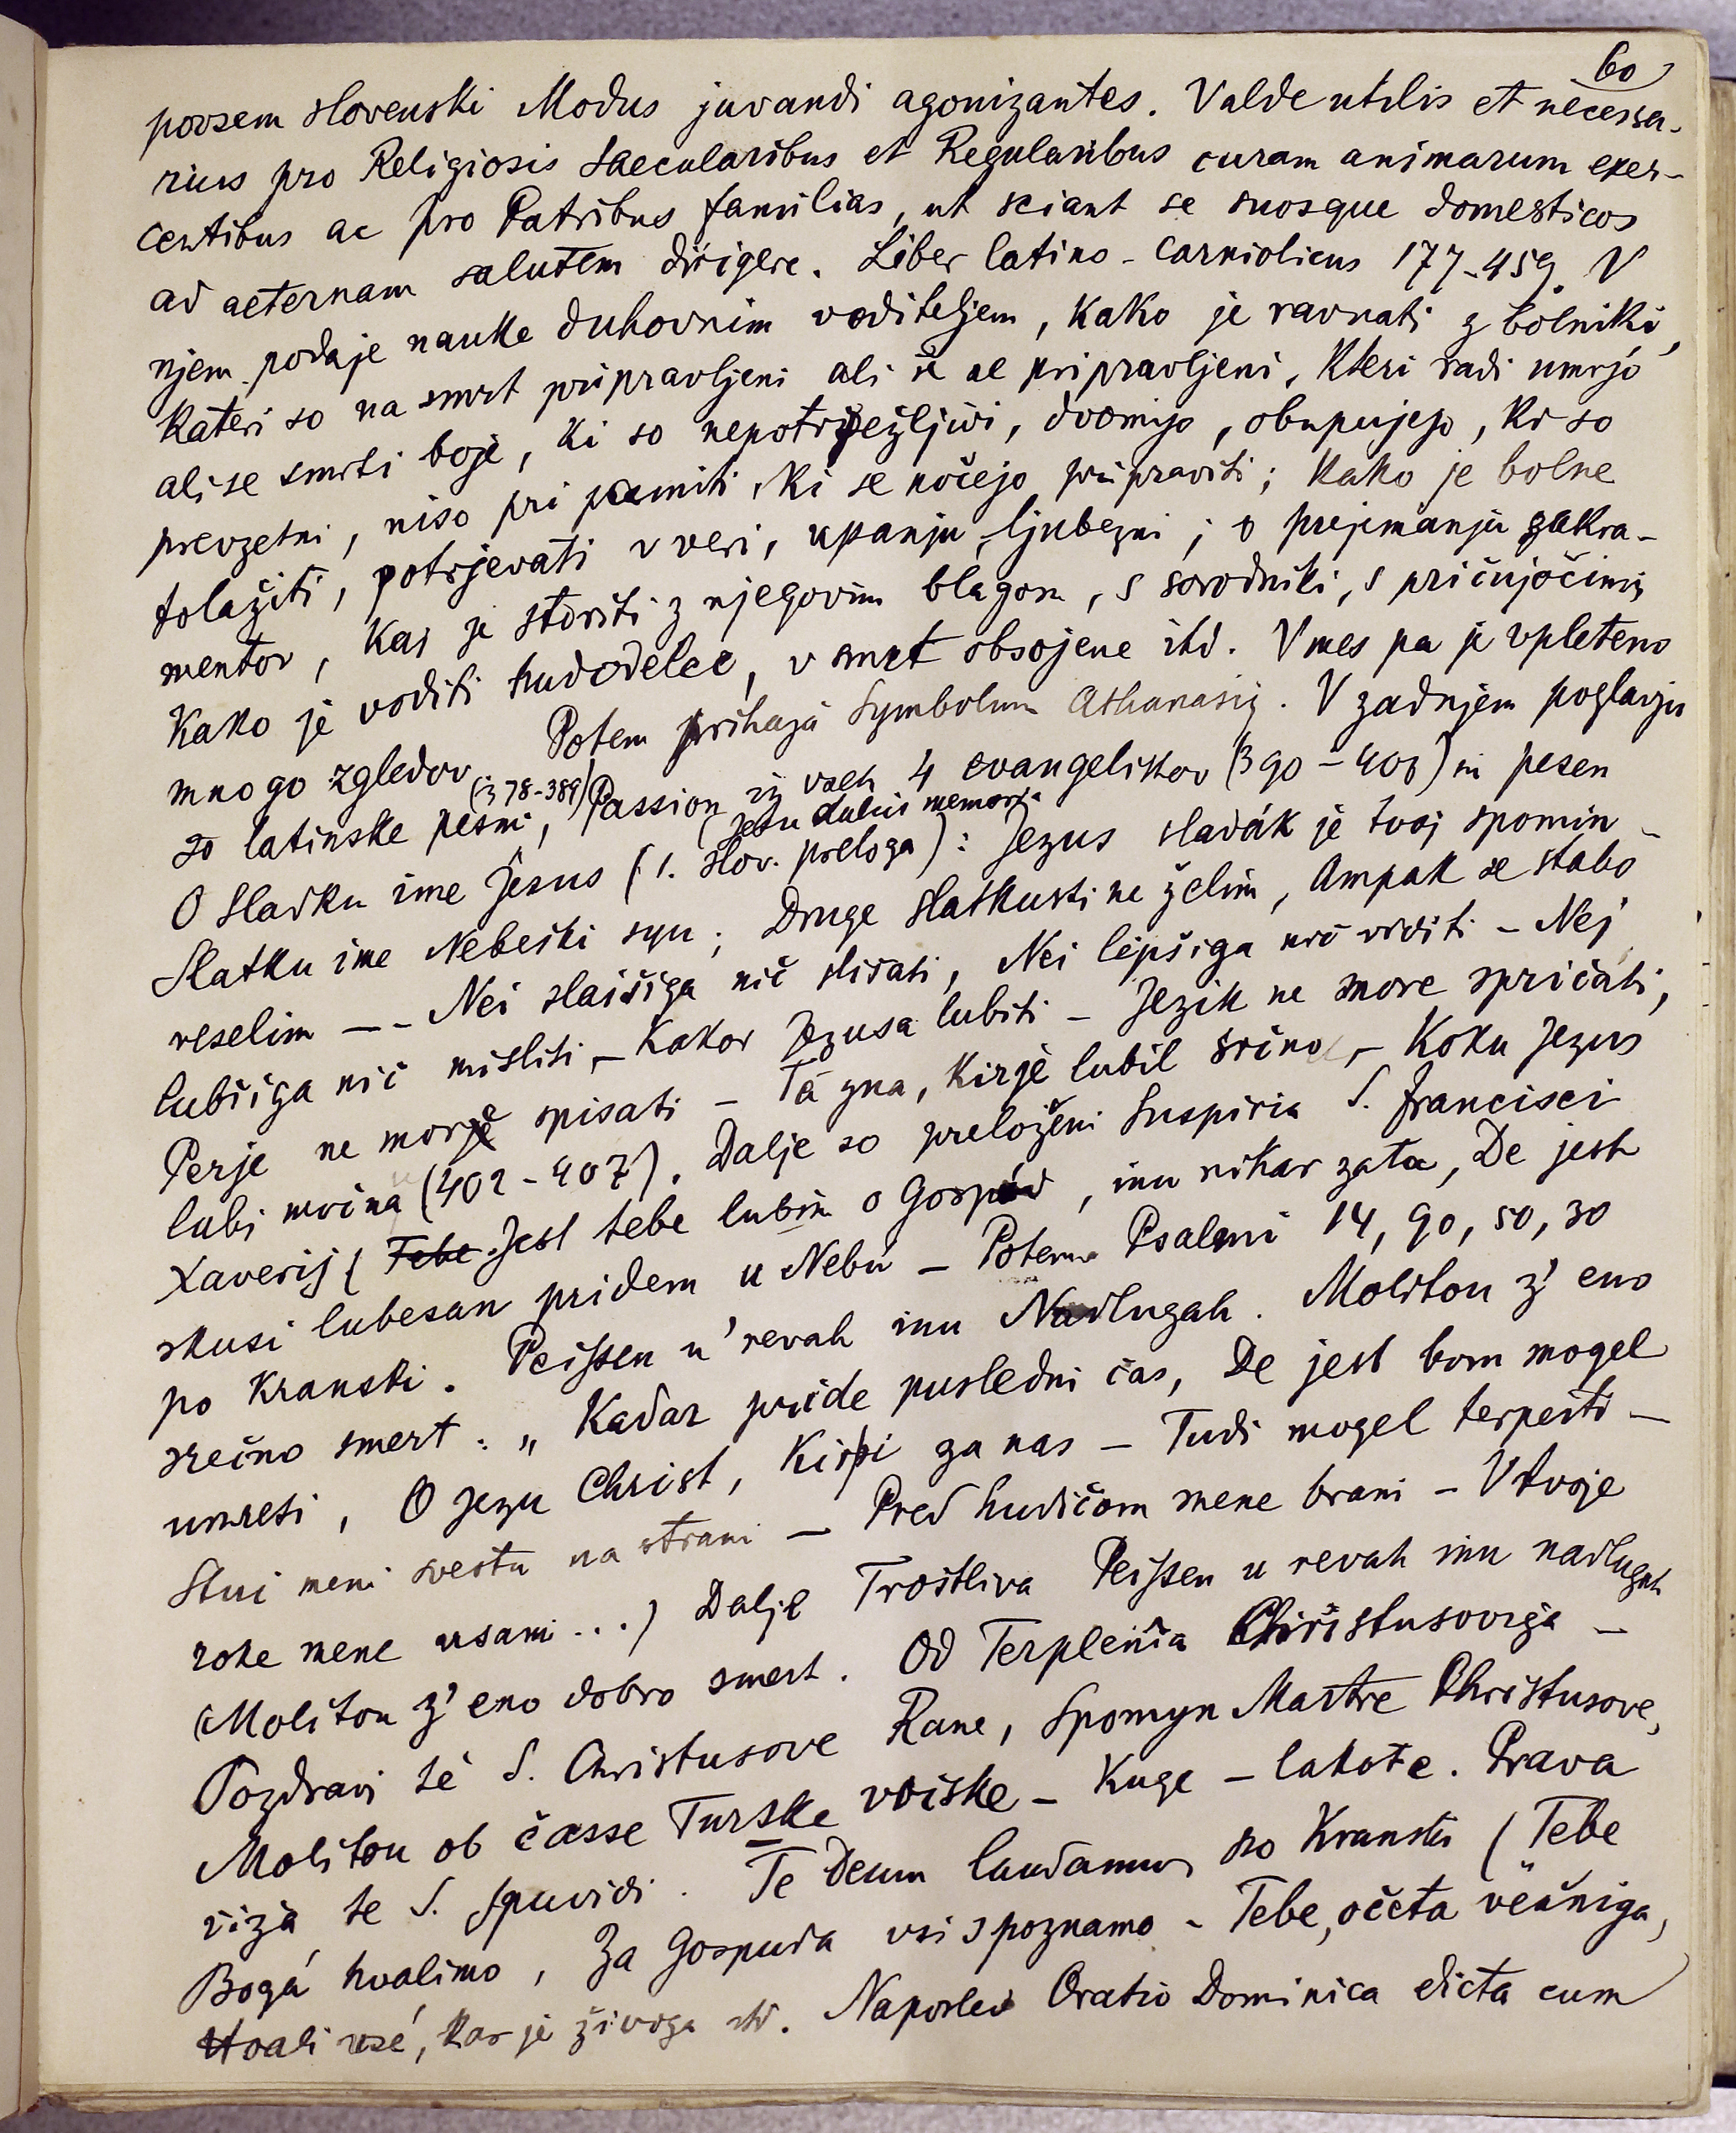 60
povsem slovenski Modus juvandi agonizantes. Valde utilis et necessa-
rius pro Religiosis Saecularibus et Regularibus curam animarum exer-
centibus ac pro Patribus familias, ut sciant se suosque domesticos
ad aeternam salutem dirigere. Liber latino-carniolicus 177-459. V
njem podaje nauke duhovnim voditeljem, kako je ravnati z bolniki,
kateri so na smrt pripravljeni ali ne pripravljeni, kteri radi umrjo
ali se smrti boje, ki so nepotrpežljivi, dvomijo, obupujejo, ki so
prevzetni, niso pri pameti, ki se nočejo pripraviti; kako je bolne
tolažiti, potrjevati v veri, upanju, ljubezni; o prejemanju zakra-
mentov, kaj je storiti z njegovim blagom, s sorodniki, s pričujočimi,
kako je voditi hudodelce, v smrt obsojene itd. Vmes pa je vpleteno
mnogo zgledov. Potem prihaja Symbolum Athanasij. V zadnjem poglavju
so latinske pesmi, (378-389) Passion iz vseh 4 evangelistov (390-403) in pesen
O sladku ime Jesus (1. slov. preloga) (Jesu dulcis memoria: Jezus sladák je tvoj spomin -
Slatku ime Nebeški syn; Druge slatkusti ne želim, Ampak se stabo
veselim -- Nei slaišiga nič slišati, Nei lepšiga nič viditi - Nej
lubšiga nič misliti, - Kakor Jezusa lubiti - Jezik ne more spričati,
Perje ne more spisati - Ta zna, kir je lubil srčno, - Koku Jezus
lubi močna (402-407). Dalje so preloženi Suspiria S. Francisci
Xaverij (Tebe Jest tebe lubim o Gospúd, inu nikar zata, De jest
skusi lubesan pridem u Nebu - Potem Psalmi 14, 90, 50, 30
po kranski. Peissen u' revah inu Nadlugah. Molitou z' eno
srečno smert: „Kadar pride pusledni čas, De jest bom mogel
umreti, O Jezu Christ, kir si za nas - Tudi mogel terpeiti -
Stui meni svestu na strani - Pred hudičam mene brani - V tvoje
roke mene vsami...) Dalje Troštliva Peissen u revah inu nadlugah
(Molitou z' eno dobro smert. Od Terplenia Christusoviga -
Pozdravi te S. Christusove Rane, Spomyn Martre Christusove,
Molitou ob časse Turske voiske - Kuge - lakote. Prava
viža te S. spuvidi. Te Deum laudamus po Kranski (Tebe
Bogá hvalimo, Za Gospuda vsi spoznamo - Tebe, očeta večniga,
Hvali vsé, kar je živiga itd. Naposled Oratio Dominica dicta cum